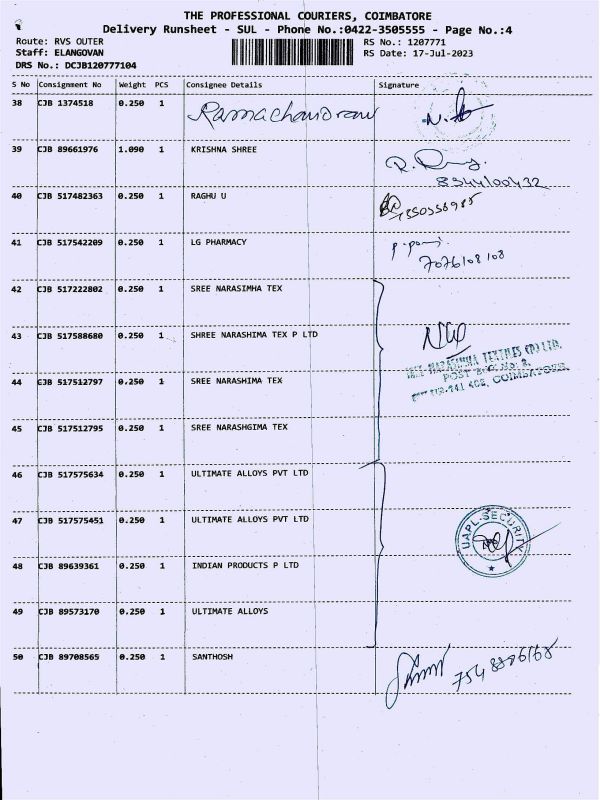 THE PROFESSIONAL COURIERS, COIMBATORE
Delivery Runsheet - SUL - Phone No.:0422-3505555 - Page No.:4
Route: RVS OUTER RS No.: 1207771
Staff: ELANGOVAN RS Date: 17-Jul-2023
DRS No.: DCJB120777104
S No Consignment No Weight PCS Consignee Details Signature
38 CJB 1374518 0.250 1 Ramachandran
39 CJB 89661976 1.090 1 KRISHNA SHREE
8344100432
40 CJB 517482363 0.250 1 RAGHU U
41 CJB 517542209 0.250 1 LG PHARMACY
7076108108
42 CJB 517222802 0.250 1 SREE NARASIMHA TEX
43 CJB 517588680 0.250 1 SHREE NARASHIMA TEX P LTD
NARASIMHA TEXTILES (P) LTD.
POST BOX No: 2,
44 CJB 517512797 0.250 1 SREE NARASHIMA TEX
COIMBATORE
45 CJB 517512795 0.250 1 SREE NARASHGIMA TEX
46 CJB 517575634 0.250 1 ULTIMATE ALLOYS PVT LTD
47 CJB 517575451 0.250 1 ULTIMATE ALLOYS PVT LTD
UAPL.SECURITY
48 CJB 89639361 0.250 1 INDIAN PRODUCTS P LTD
49 CJB 89573170 0.250 1 ULTIMATE ALLOYS
50 CJB 89708565 0.250 1 SANTHOSH